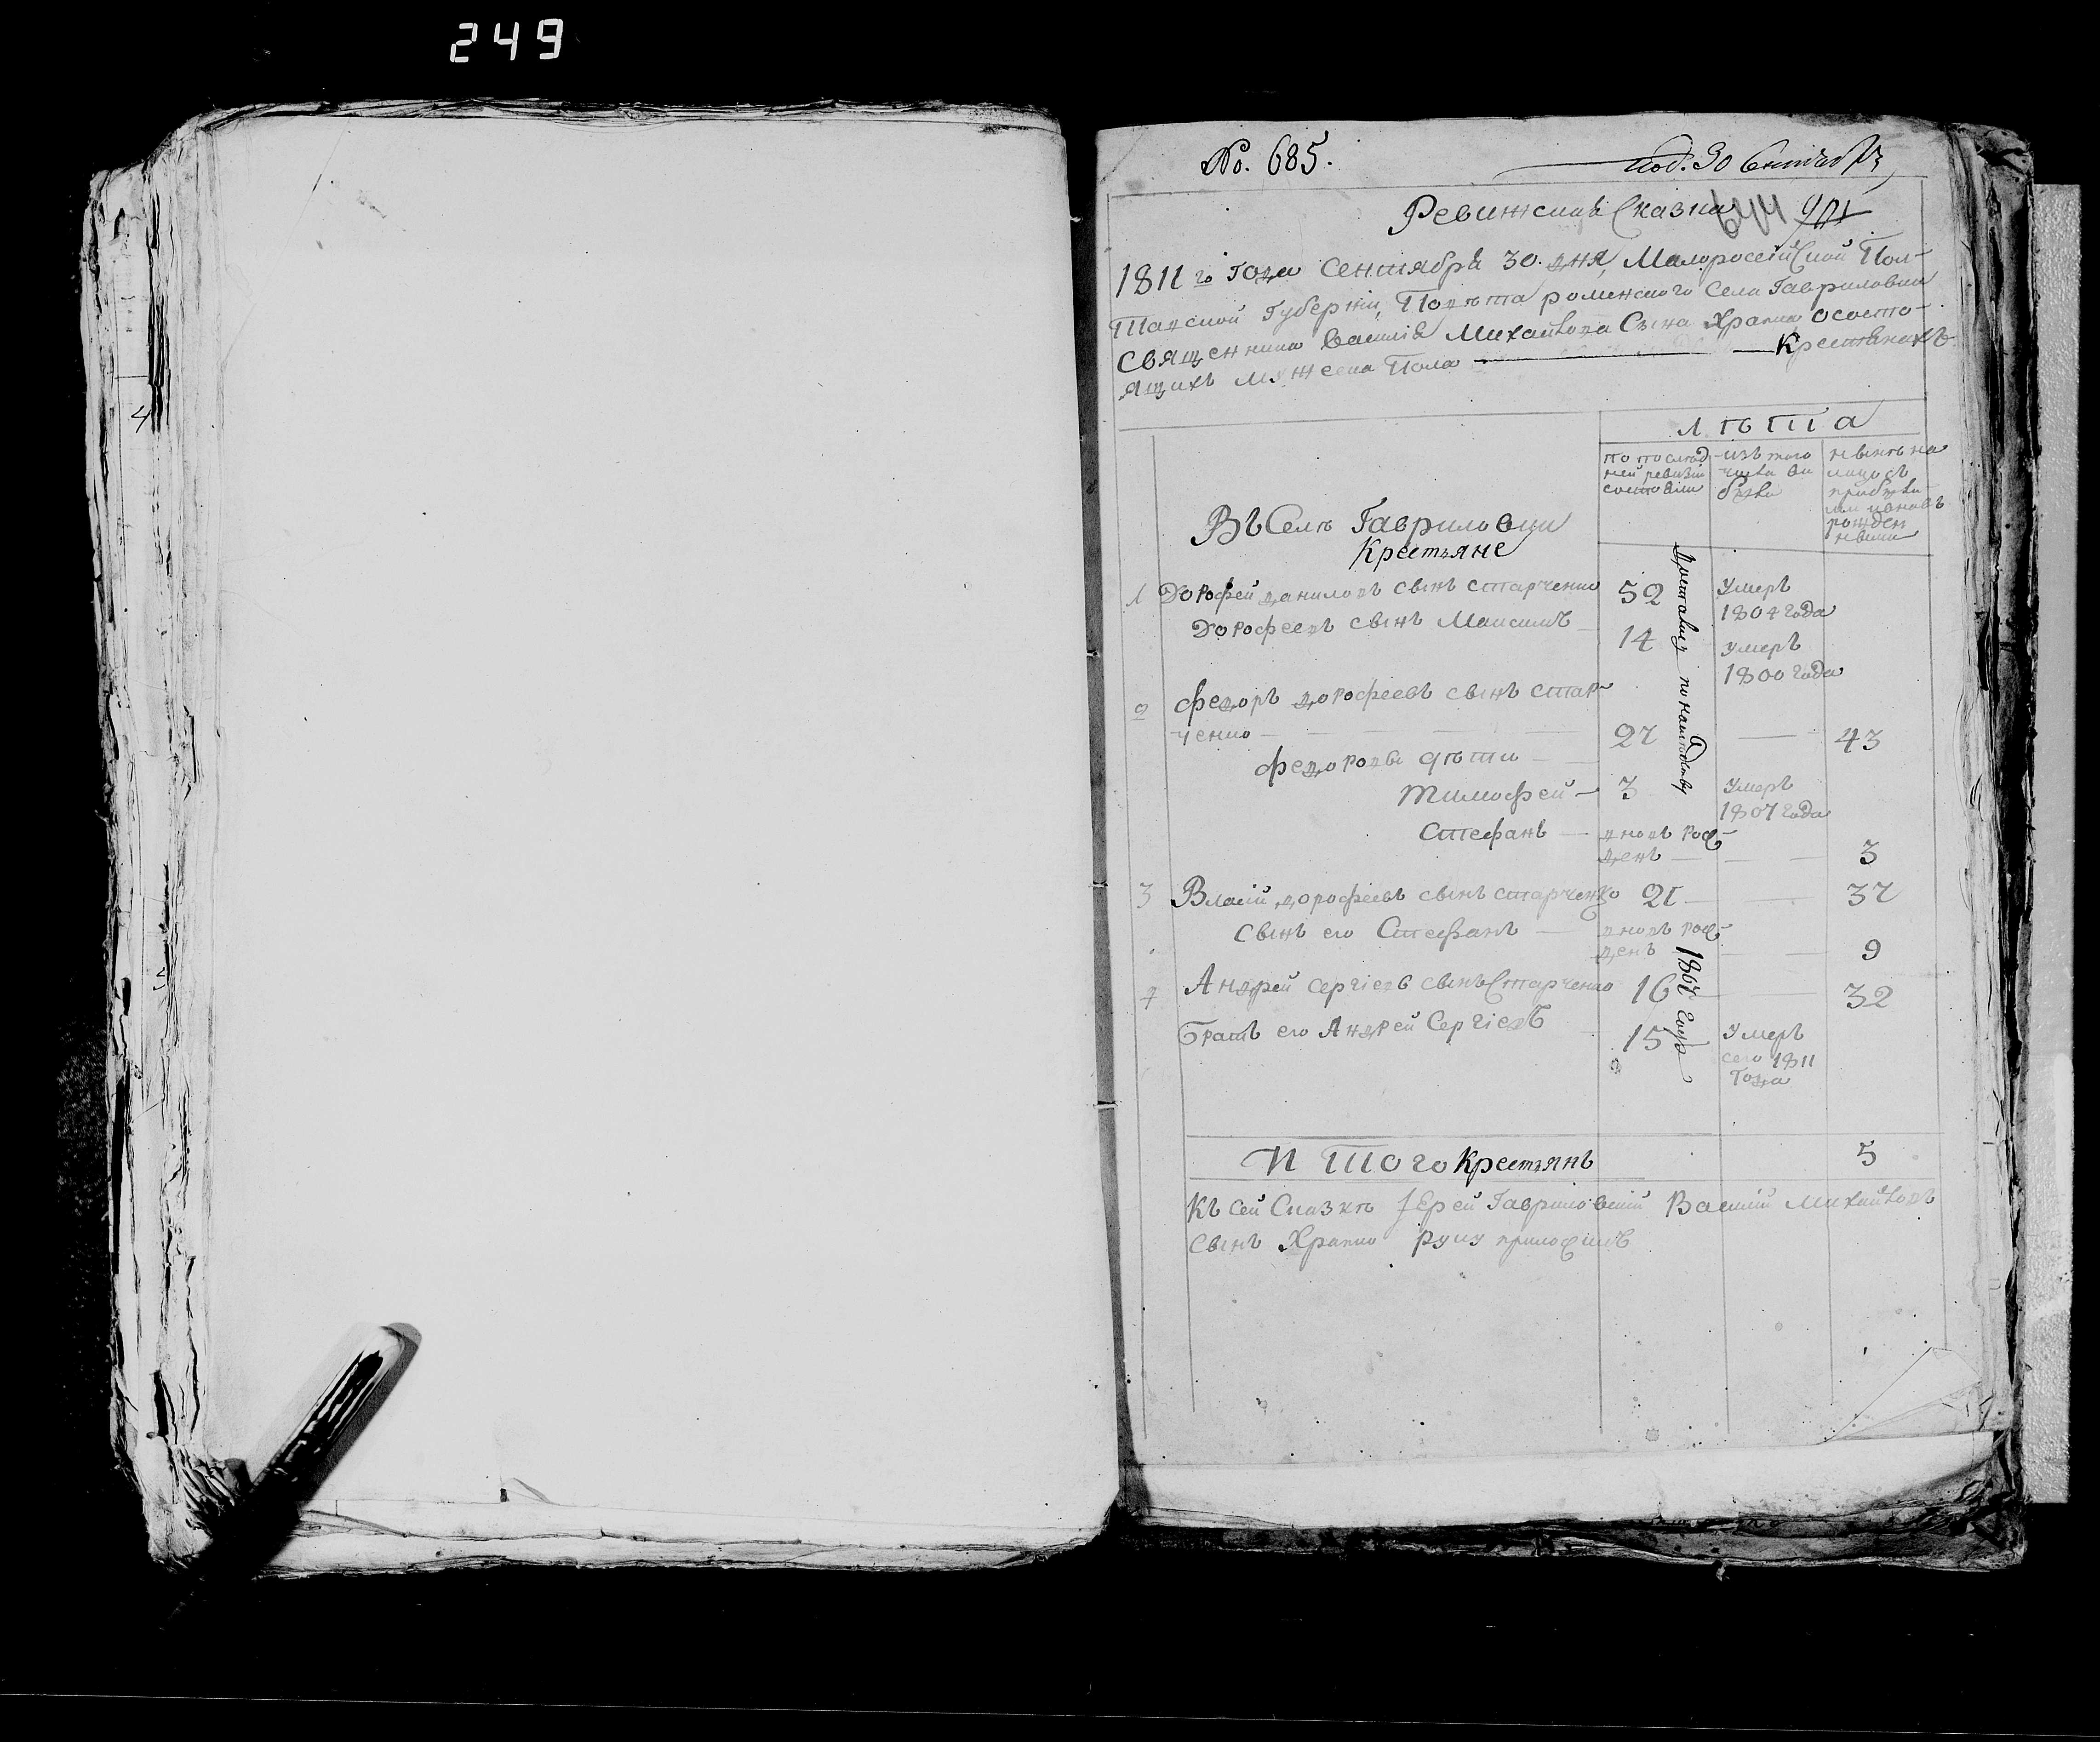 249
4
No. 685.
под. 30 Сентября
Ревижская Сказка 644 901
1811го Года Сентября 30. дня, Малоросейской Пол-
тавской Губерніи, Повѣта роменского Села Гавриловки
Священника Василія Михайлова Сына Храпка о состо-
ящихъ мужеска Пола — Крестьянахъ
Лѣта
по послѣд
ней ревизіи
состояли
изъ того
числа вы
было
нынѣ на
лицо съ
прибыли
ми и вновь
рожден
ными
Въ Селѣ Гавриловци
Крестьяне
1 Дорофей данидовъ сынъ старченко 52 Умеръ
1804 года
Дорофеевъ сынъ Максимъ 14 умеръ
1800 года
2 Федоръ дорофеевъ сынъ стар-
ченко — 27 — 43
федоровы дѣти —
Тимофей — 3 Умеръ
1807 года
Стефанъ — вновъ рож-
денъ — — 3
3 Власій дорофеевъ сынъ старченко 21 — — 37
сынъ его Стефанъ — вновъ рож-
денъ — — 9
4 Андрей сергіевъ сынъ Старченко 16 — — 32
Братъ его Андрей Сергіевъ 15 Умеръ
сего 1811
Года
2
достались по наслѣдству
1807 году
Итого крестьянъ 5
Къ сей Сказкѣ Іерей Гавриловскій Василій Михайловъ
сынъ Храпко руку приложилъ